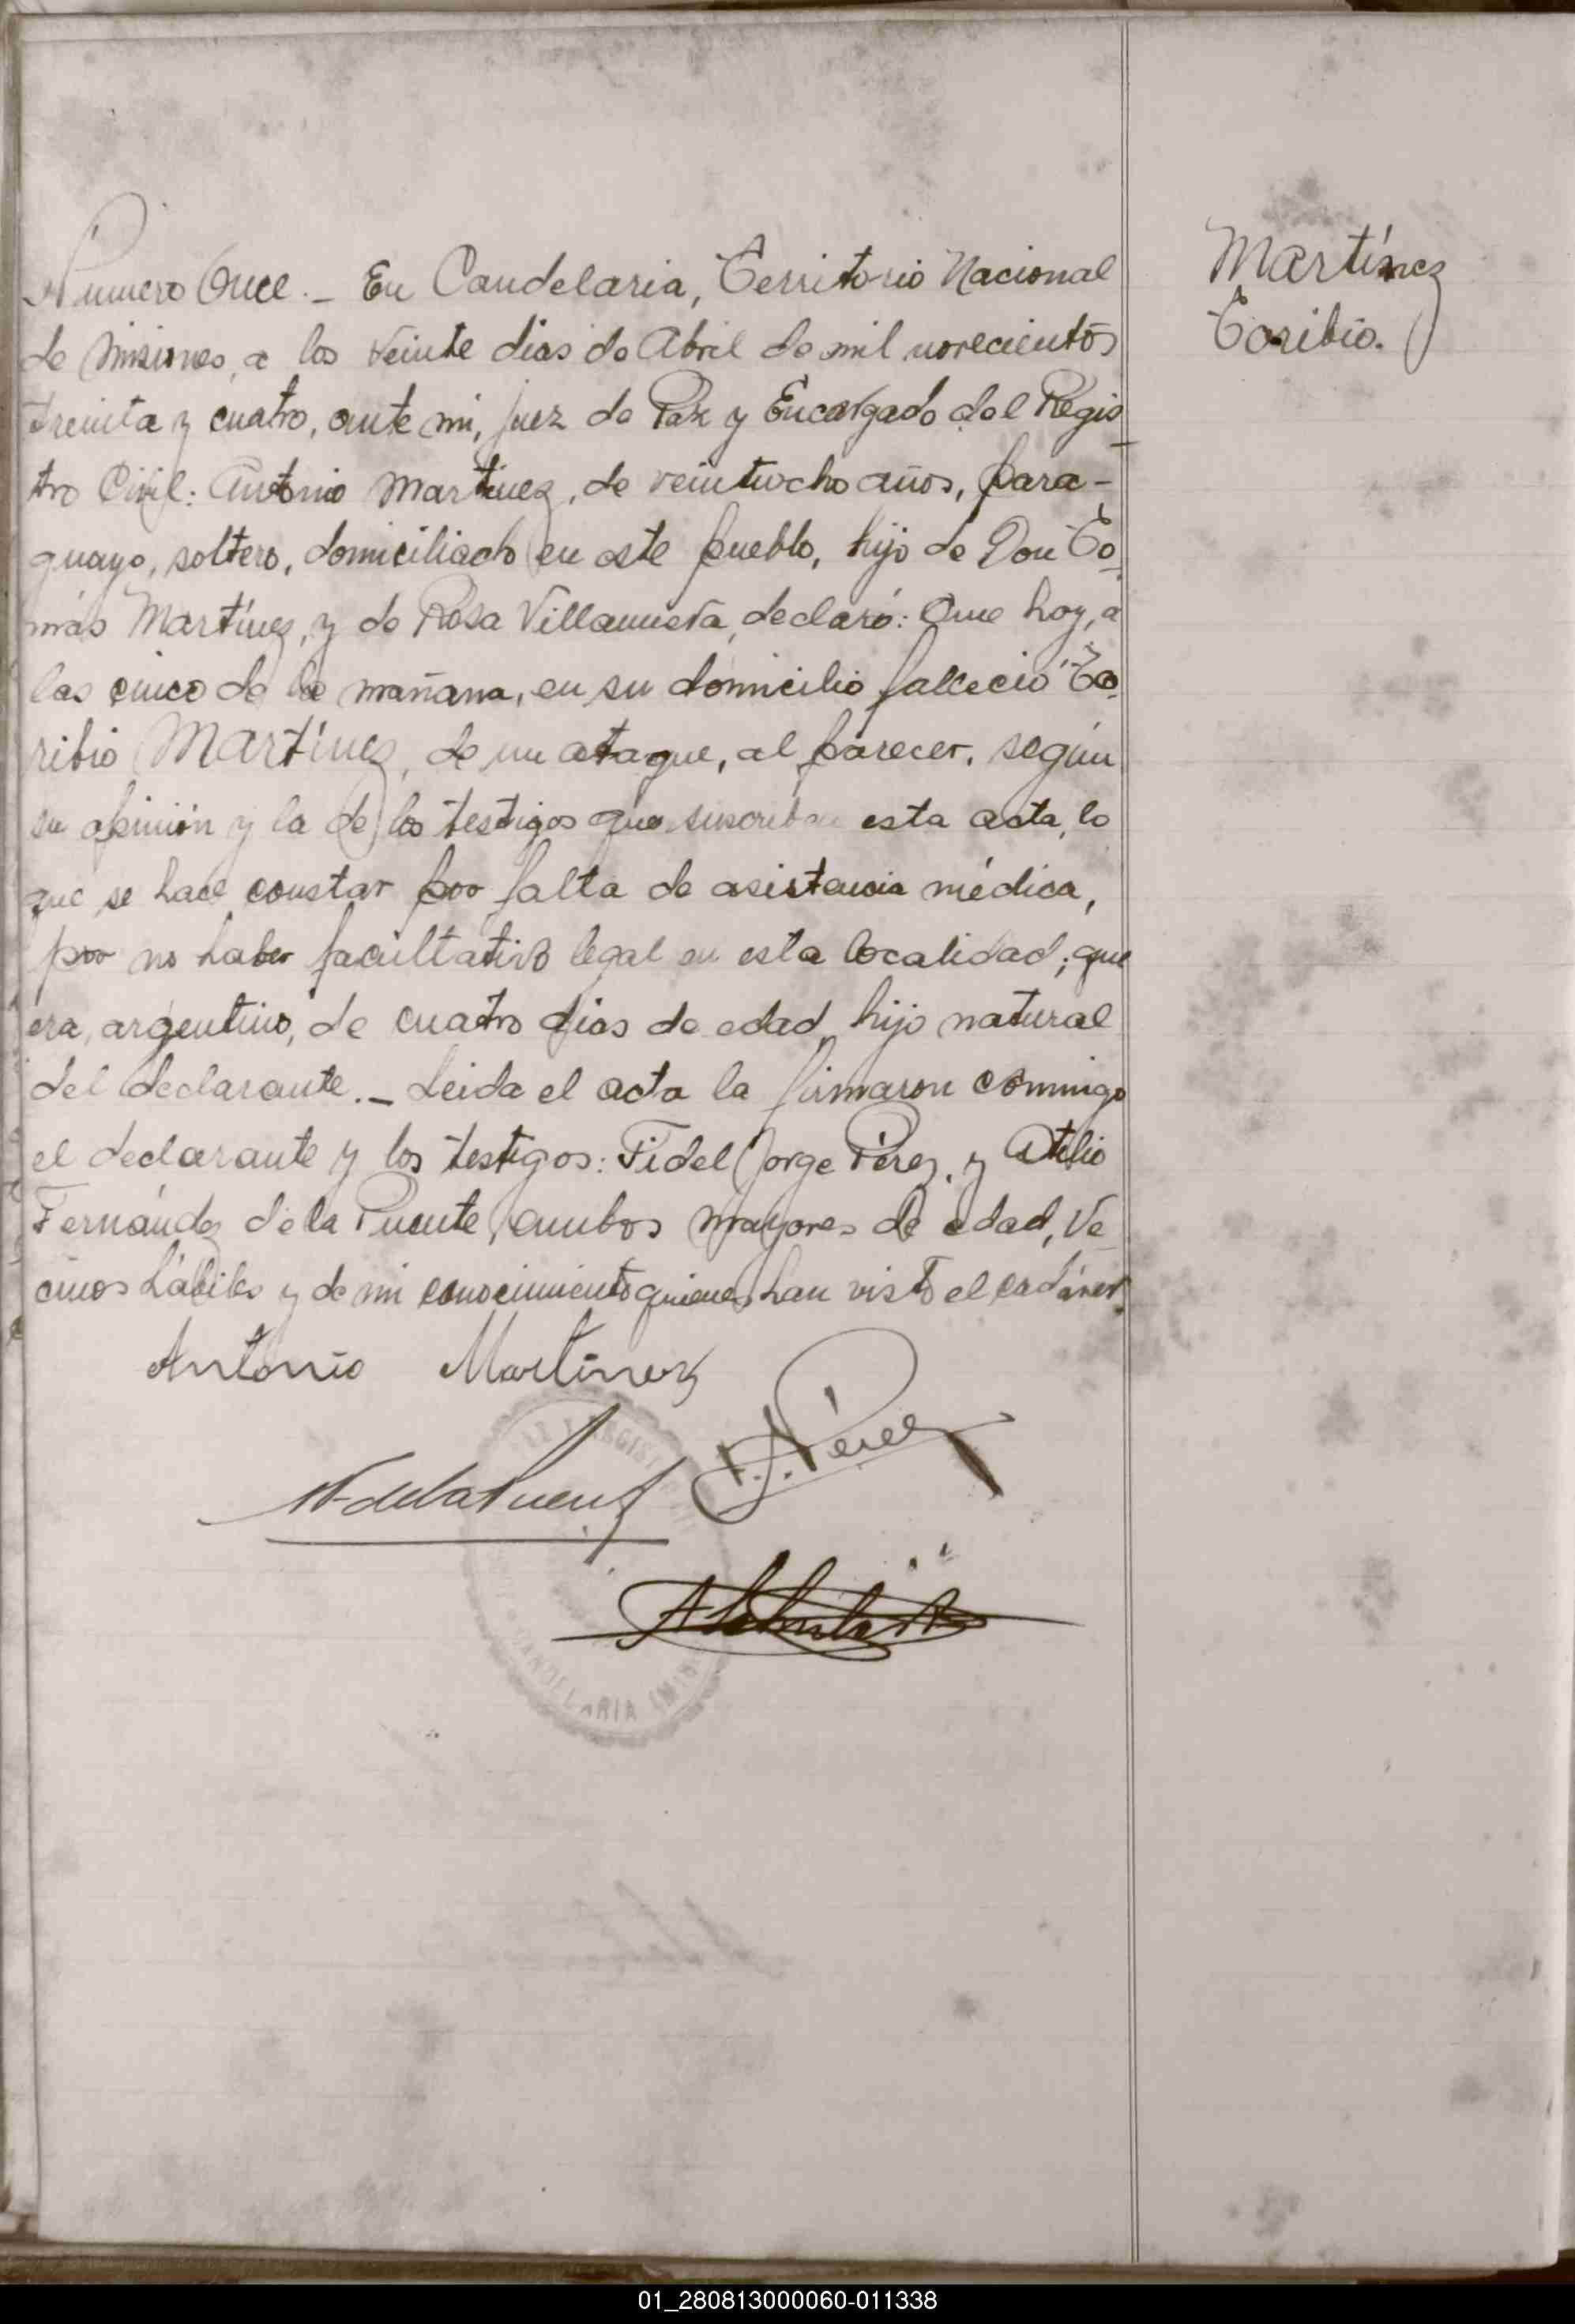 Número Once._ En Candelaria, Territorio Nacional
de Misiones, a los veinte dias de Abril de mil novecientos
treinta y cuatro, ante mi, Juez de Paz y Encargado del Regis
tro Civil: Antonio Martínez, de veintiocho años, para-
guayo, soltero, domiciliado en este pueblo, hijo de Don To-
más Martínez, y de Rosa Villanueva, declaró: Que hoy, a
las cinco de la mañana, en su domicilio falleció To-
ribio Martínez, de un ataque, al parecer, según
su opinión y la de los testigos que suscriben esta acta, lo
que se hace constar por falta de asistencia médica,
por no haber facultativo legal en esta localidad; que
era, argentino, de cuatro dias de edad, hijo natural
del declarante._ Leida el acta la firmaron conmigo
el declarante y los testigos: Fidel Jorge Pérez, y Atilio
Fernández de la Puente, ambos mayores de edad, Ve-
cinos hábiles y de mi conocimiento quienes han visto el cadáver.
Martínez
Toribio.
Antonio Martinez
F.J. Pérez
AF de la Puente
CANDELARIA
01_280813000060-011338